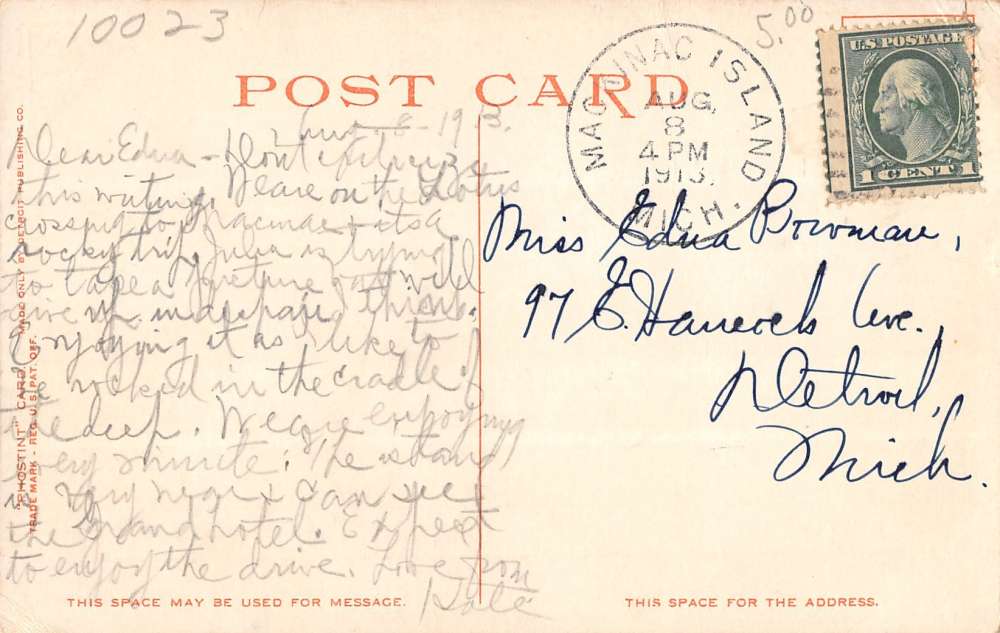 10023
5.00
U.S. POSTAGE
1 CENT 1
MACKINAC ISLAND
AUG
8
4 PM
1913.
MICH.
POST CARD
"PHOSTINT" CARD. MADE ONLY BY DETROIT PUBLISHING CO.
TRADE MARK - REG. U.S. PAT. OFF.
8-1913.
Dear Edna - Dont
this writing. We are on the Lotus
crossing to & its a
rocky trip. is trying
to take a picture and will
give up in despair I think.
Enjoying it as I like to
be rocked in the cradle of
the deep. We are enjoying
every minute. The island
is very near & can see
the Grand hotel. Expect
to enjoy the drive. Love from
Kate
Miss Edna Bowman,
97 E. Hancock Ave.,
Detroit,
Mich.
THIS SPACE MAY BE USED FOR MESSAGE.
THIS SPACE FOR THE ADDRESS.